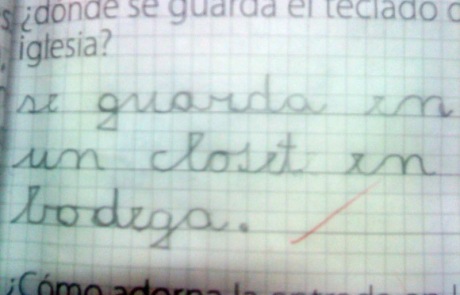 ¿dónde se guarda el teclado
iglesia?
se guarda en
un closet en
bodega.
¿Cómo adorna la entrada en